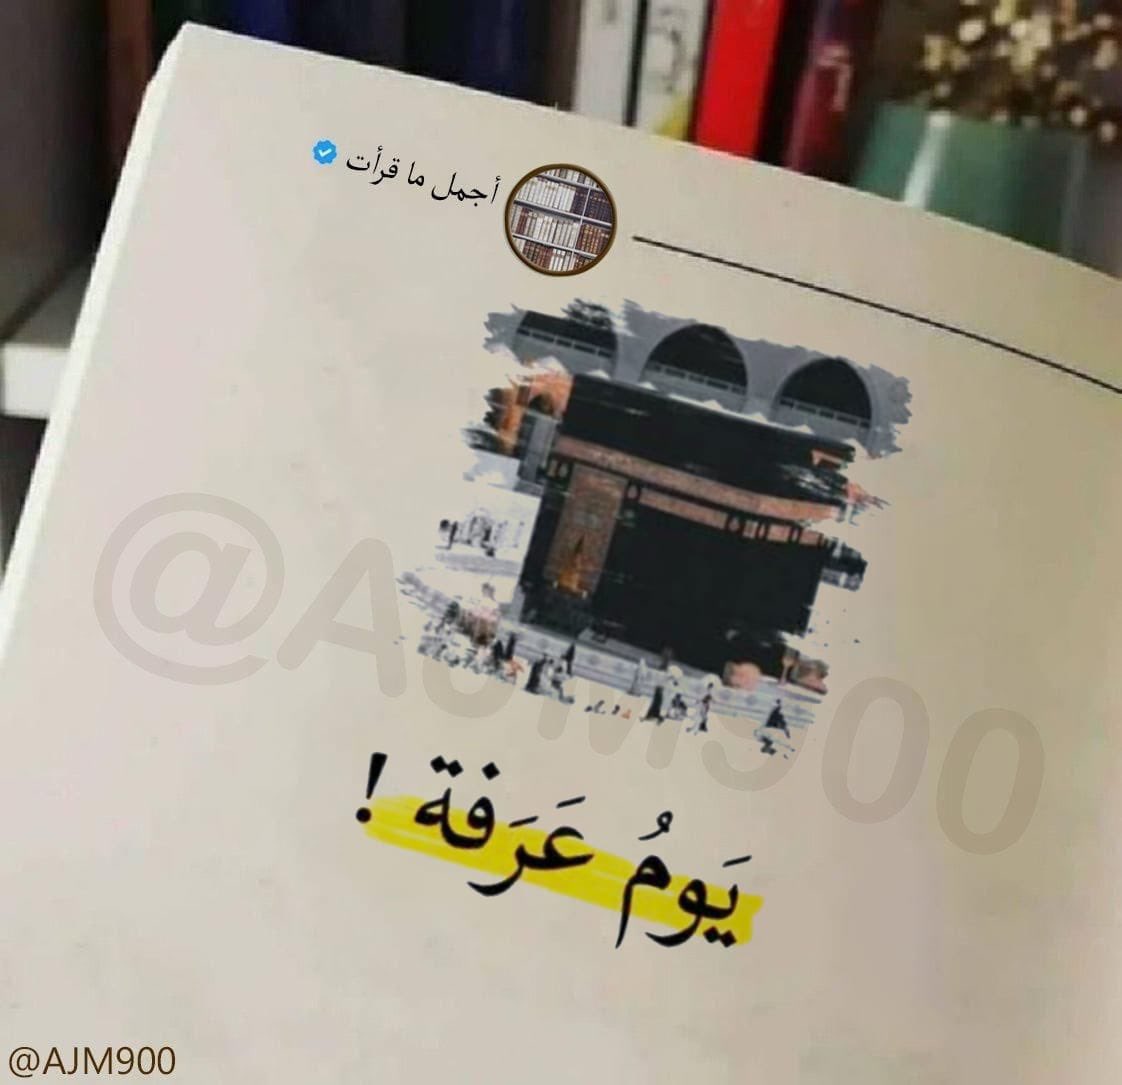 أجمل ما قرأت
يَومُ عَرَفة !
@AJM900
@AJM900